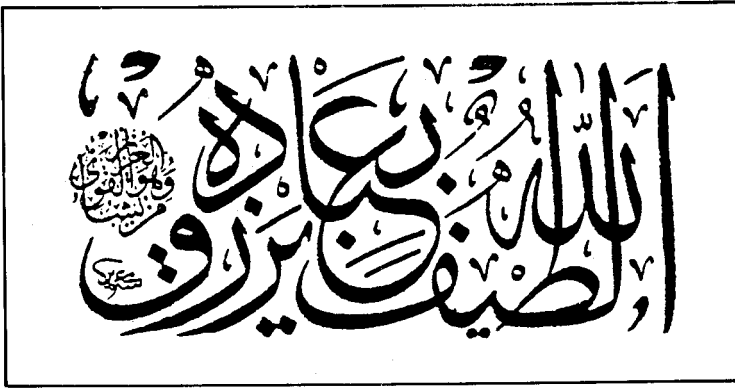 الله لطيف بعباده يرزق
من يشاء
وهو القوي
العزيز